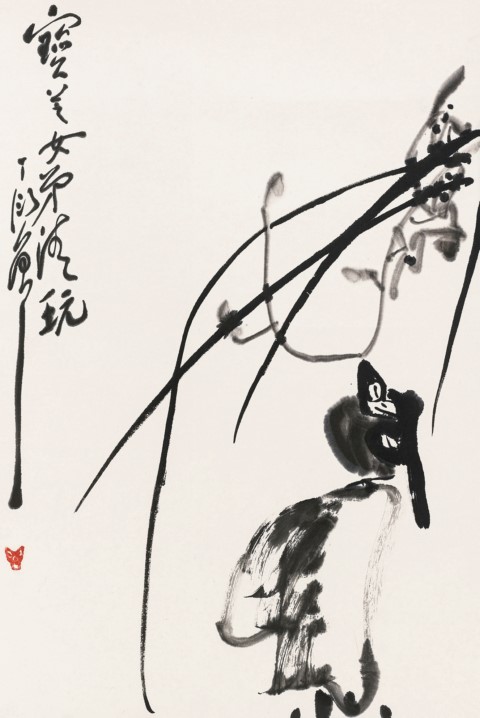 寶美女弟清玩
丁衍庸